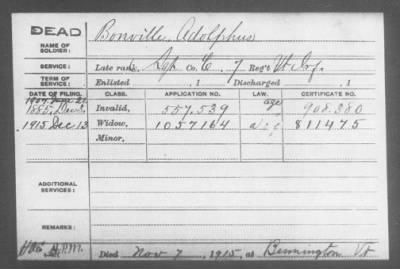 DEAD
Bonville, Adolphus
NAME OF SOLDIER:
SERVICE: Late rank, Sgt Co. E, 7 Reg't Vt Inf.
TERM OF SERVICE: Enlisted , 1 Discharged , 1
DATE OF FILING. CLASS. APPLICATION NO. LAW. CERTIFICATE NO.
1907 June 21
1885, Invalid, 557.539 age 908.380
1915 Dec 13 Widow, 1057164 811475
Minor,
ADDITIONAL SERVICES:
REMARKS:
Died Nov 7, 1915, at Bennington Vt